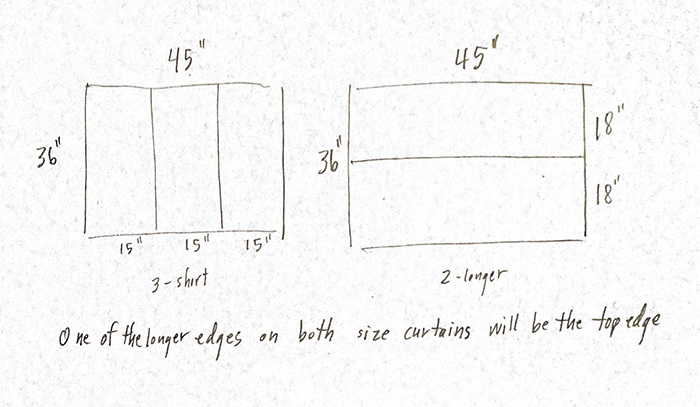 45" 45"
36" 36" 18"
18"
15" 15" 15"
3-short 2-longer
One of the longer edges on both size curtains will be the top edge